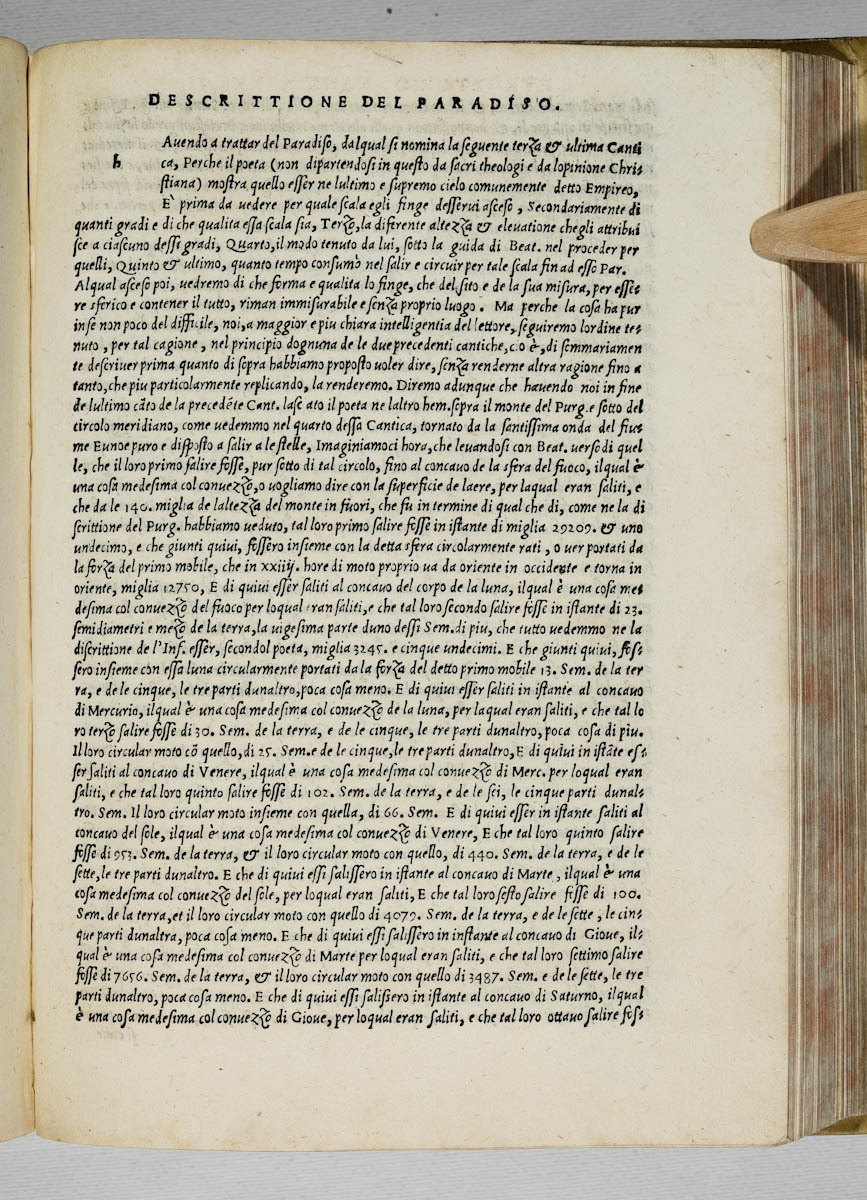 DESCRITTIONE DEL PARADISO.
h
Auendo a trattar del Paradiso, dalqual si nomina la seguente terza & ultima Canti
ca, Perche il poeta (non dipartendosi in questo da sacri theologi e da lopinione Chris
stiana) mostra quello esser ne lultimo e supremo cielo comunemente detto Empireo,
E' prima da uedere per quale scala egli finge desserui asceso, Secondariamente di
quanti gradi e di che qualita essa scala sia, Terzo, la diferente altezza & eleuatione chegli attribui
sce a ciascuno dessi gradi, Quarto, il modo tenuto da lui, sotto la guida di Beat. nel proceder per
quelli, Quinto & ultimo, quanto tempo consumò nel salir e circuir per tale scala fin ad esso Par.
Alqual asceso poi, uedremo di che forma e qualita lo finge, che del sito e de la sua misura, per esse⸗
re sferico e contener il tutto, riman immisurabile e senza proprio luogo. Ma perche la cosa ha pur
in se non poco del difficile, noi, a maggior e piu chiara intelligentia del lettore, seguiremo lordine te⸗
nuto, per tal cagione, nel principio dognuna de le due precedenti cantiche, cio è, di sommariamen
te descriuer prima quanto di sopra habbiamo proposto uoler dire, senza renderne altra ragione fino a
tanto, che piu particolarmente replicando, la renderemo. Diremo adunque che hauendo noi in fine
de lultimo cāto de la precedēte Cant. lasciato il poeta ne laltro hem. sopra il monte del Purg. e sotto del
circolo meridiano, come uedemmo nel quarto dessa Cantica, tornato da la santissima onda del fiu⸗
me Eunoe puro e disposto a salir a le stelle, Imaginiamoci hora, che leuandosi con Beat. uerso di quel
le, che il loro primo salire fosse, pur sotto di tal circolo, fino al concauo de la sfera del fuoco, ilqual è
una cosa medesima col conuezzo, o uogliamo dire con la superficie de laere, per laqual eran saliti, e
che da le 140. miglia de laltezza del monte in fuori, che fu in termine di qual che di, come ne la di
scrittione del Purg. habbiamo ueduto, tal loro primo salire fosse in istante di miglia 29209. & uno
undecimo, e che giunti quiui, fossero insieme con la detta sfera circolarmente rati, o uer portati da
la forza del primo mobile, che in xxiiij. hore di moto proprio ua da oriente in occidente e torna in
oriente, miglia 12750, E di quiui esser saliti al concauo del corpo de la luna, ilqual è una cosa me⸗
desima col conuezzo del fuoco per loqual eran saliti, e che tal loro secondo salire fosse in istante di 23.
semidiametri e mezo de la terra, la uigesima parte duno dessi Sem. di piu, che tutto uedemmo ne la
discrittione de l'Inf. esser, secondol poeta, miglia 3245. e cinque undecimi. E che giunti quiui, fos⸗
sero insieme con essa luna circularmente portati da la forza del detto primo mobile 13. Sem. de la ter
ra, e de le cinque, le tre parti dunaltro, poca cosa meno. E di quiui esser saliti in istante al concauo
di Mercurio, ilqual è una cosa medesima col conuezzo de la luna, per laqual eran saliti, e che tal lo
ro terzo salire fosse di 30. Sem. de la terra, e de le cinque, le tre parti dunaltro, poca cosa di piu.
Il loro circular moto cō quello, di 25. Sem. e de le cinque, le tre parti dunaltro, E di quiui in istāte es⸗
ser saliti al concauo di Venere, ilqual è una cosa medesima col conuezzo di Merc. per loqual eran
saliti, e che tal loro quinto salire fosse di 102. Sem. de la terra, e de le sei, le cinque parti dunal⸗
tro. Sem. Il loro circular moto insieme con quella, di 66. Sem. E di quiui esser in istante saliti al
concauo del sole, ilqual è una cosa medesima col conuezzo di Venere, E che tal loro quinto salire
fosse di 953. Sem. de la terra, & il loro circular moto con quello, di 440. Sem. de la terra, e de le
sette, le tre parti dunaltro. E che di quiui essi salissero in istante al concauo di Marte, ilqual è una
cosa medesima col conuezzo del sole, per loqual eran saliti, E che tal loro sesto salire fosse di 100.
Sem. de la terra, et il loro circular moto con quello di 4079. Sem. de la terra, e de le sette, le cin⸗
que parti dunaltra, poca cosa meno. E che di quiui essi salissero in instante al concauo di Gioue, il⸗
qual è una cosa medesima col conuezzo di Marte per loqual eran saliti, e che tal loro settimo salire
fosse di 7656. Sem. de la terra, & il loro circular moto con quello di 3487. Sem. e de le sette, le tre
parti dunaltro, poca cosa meno. E che di quiui essi salissero in istante al concauo di Saturno, ilqual
è una cosa medesima col conuezzo di Gioue, per loqual eran saliti, e che tal loro ottauo salire fos⸗